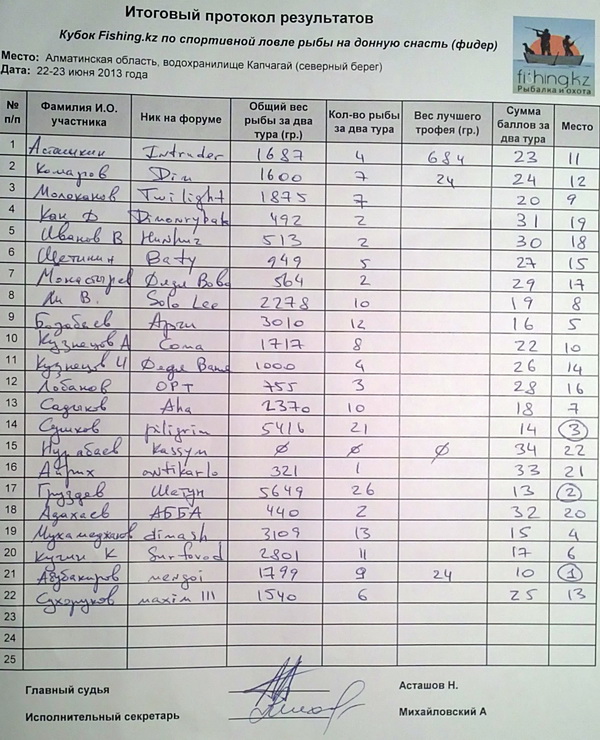 Итоговый протокол результатов
Кубок Fishing.kz по спортивной ловле рыбы на донную снасть (фидер)
Место: Алматинская область, водохранилище Капчагай (северный берег)
Дата: 22-23 июня 2013 года
fishing.kz
Рыбалка и охота
№ п/п Фамилия И.О. участника Ник на форуме Общий вес рыбы за два тура (гр.) Кол-во рыбы за два тура Вес лучшего трофея (гр.) Сумма баллов за два тура Место
1 Асташкин Intruder 1687 4 684 23 11
2 Комаров Din 1600 7 24 24 12
3 Молоканов Twilight 1875 7 20 9
4 Кан Д Dimonrybak 492 2 31 19
5 Иванов В 513 2 30 18
6 Щетинин Baty 949 5 27 15
7 Монастырев Дядя Вова 564 2 29 17
8 Ли В. Solo Lee 2278 10 19 8
9 Базабаев Арчи 3010 12 16 5
10 Кузнецов А Сома 1717 8 22 10
11 Кузнецов И Дядя Ваня 1000 4 26 14
12 Лобанов ОРТ 755 3 28 16
13 Садыков Aha 2370 10 18 7
14 Сушков piligrim 5416 21 14 3
15 Нурабаев Kassym ø ø ø 34 22
16 antikarlo 321 1 33 21
17 Груздев Шатун 5649 26 13 2
18 Адахаев АББА 440 2 32 20
19 Мухамеджанов dimash 3109 13 15 4
20 Кугин К Surfovod 2801 11 17 6
21 Абубакиров mergoi 1799 9 24 10 1
22 Сухоруков maxim III 1540 6 25 13
23
24
25
Главный судья Асташов Н.
Исполнительный секретарь Михайловский А